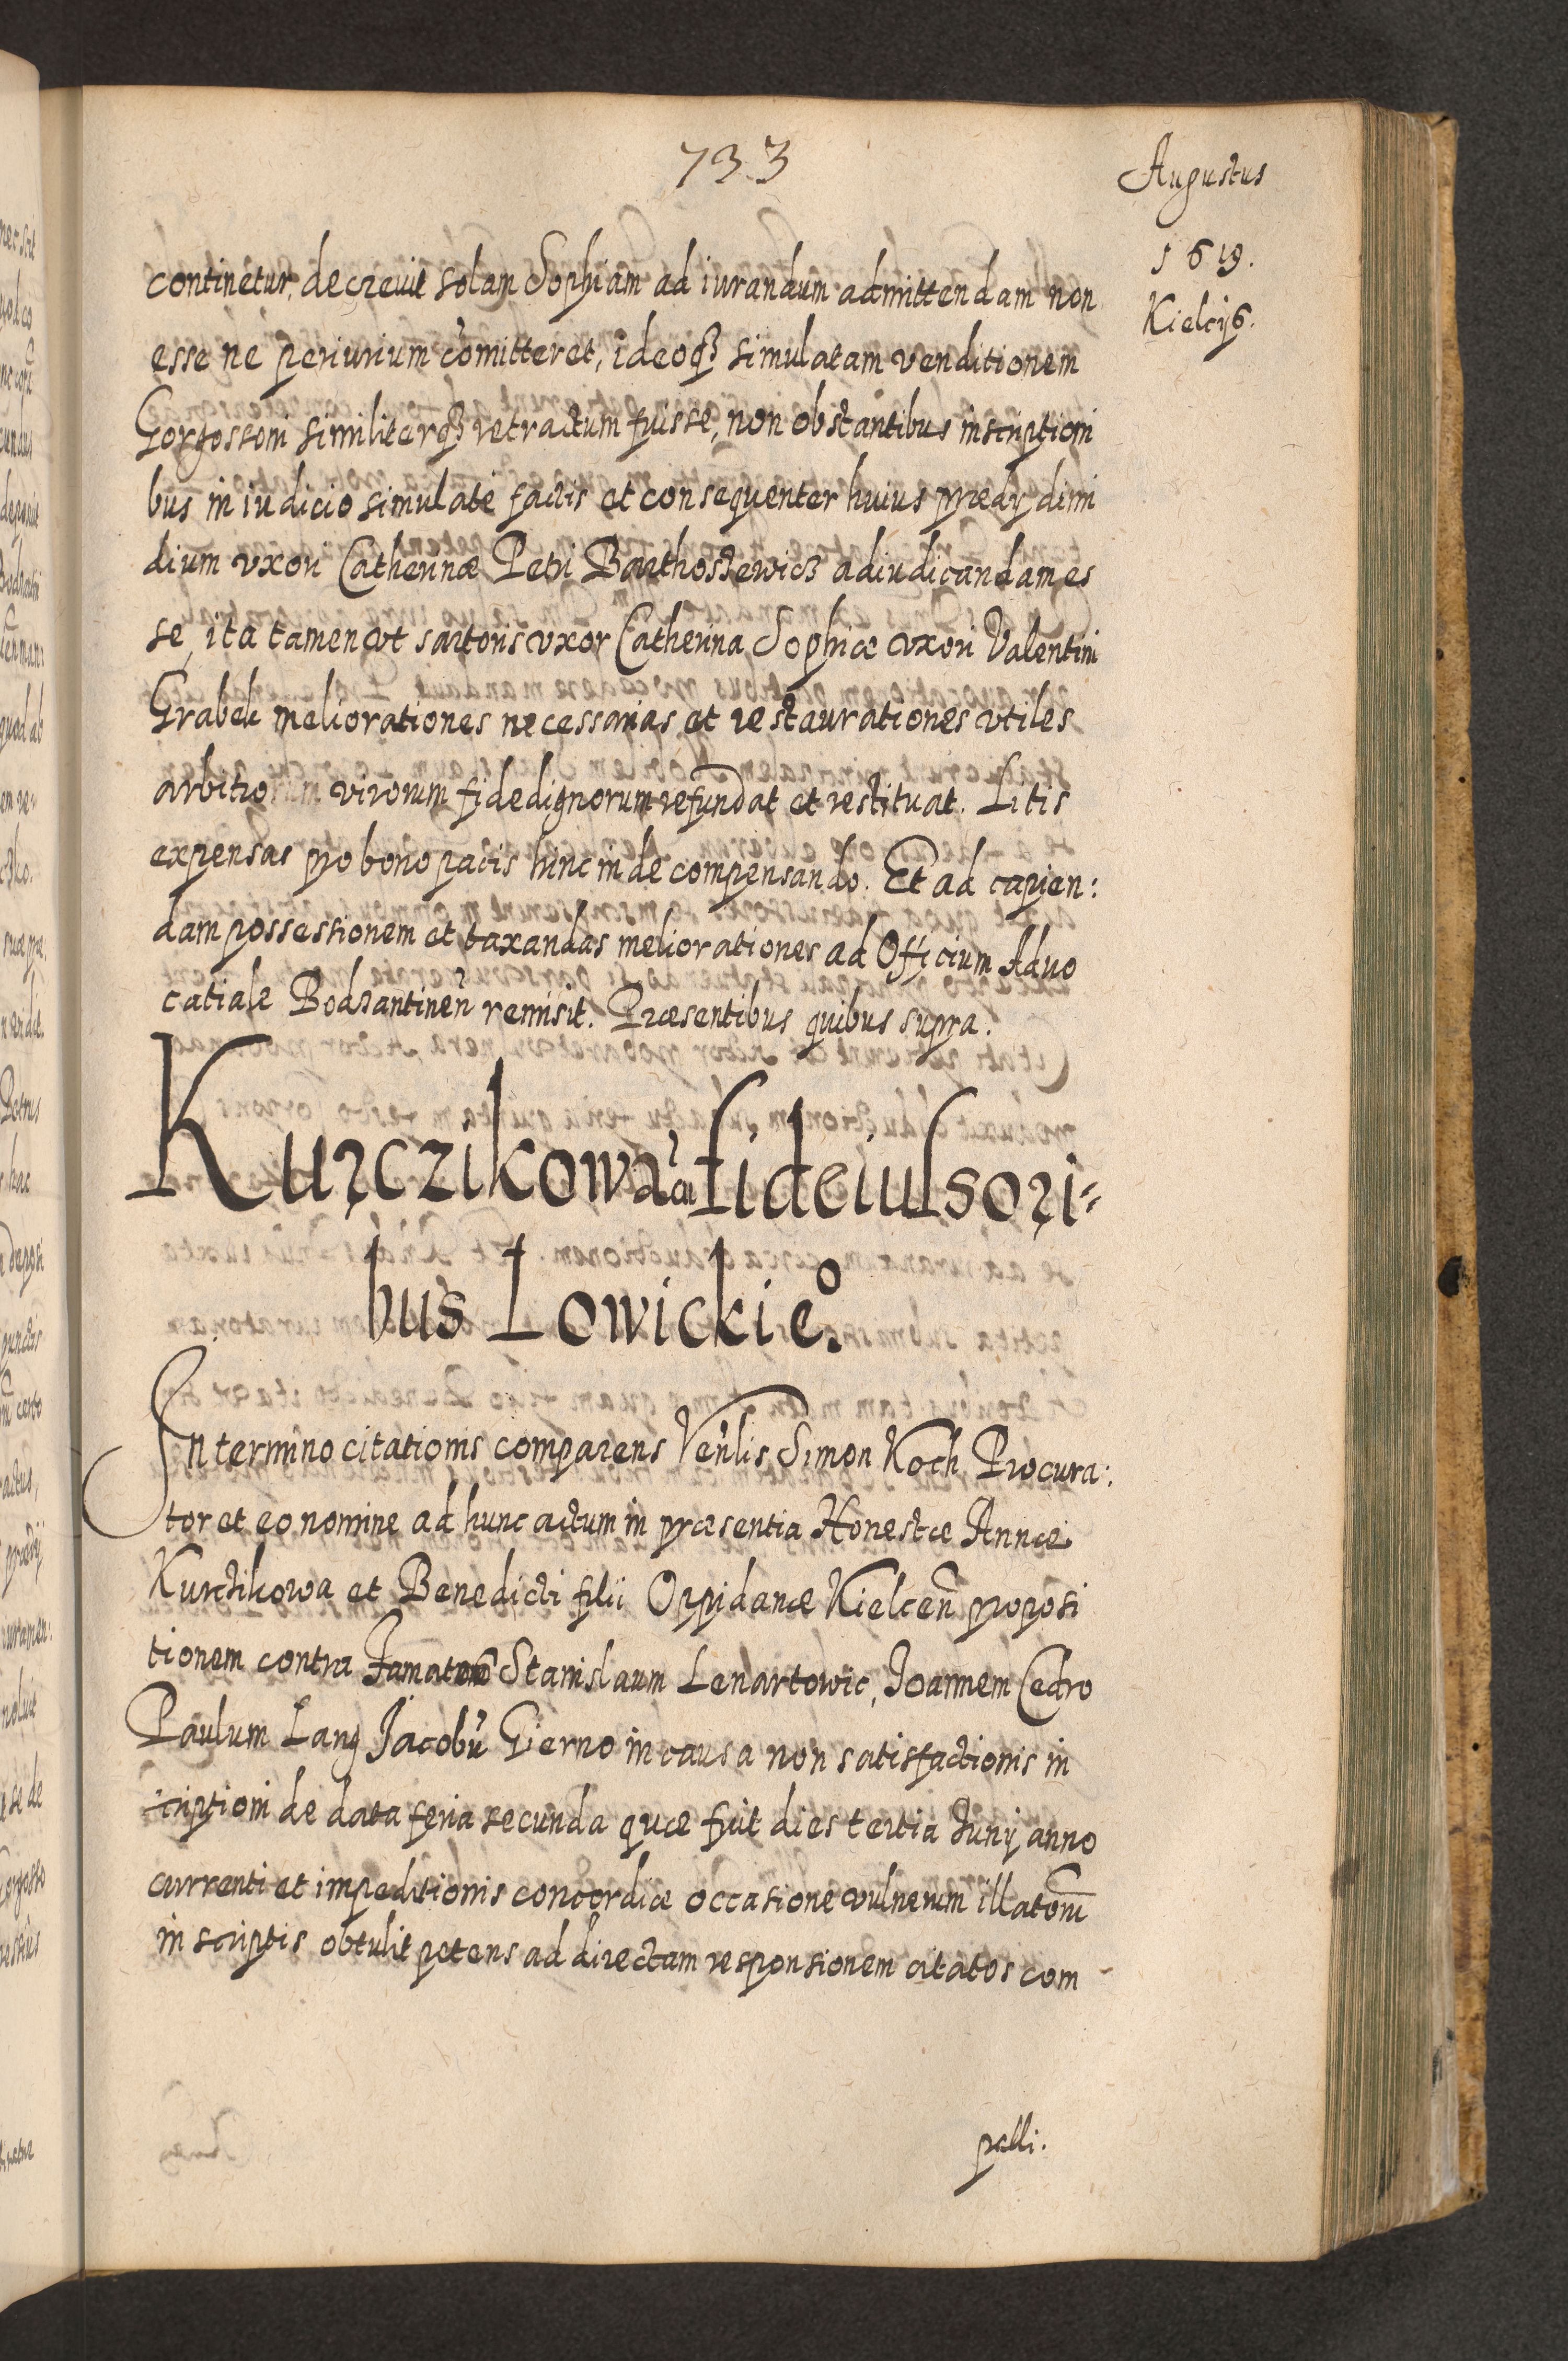 733
Augustus
1619.
Kielcijs.
continetur, decrevit solam Sophiam ad iurandum admittendam non
esse ne periurium com̃itteret, ideoqȝ simulatam venditionem
Gorgossoni similiterqȝ retractum fuisse, non obstantibus inscriptioni
bus in iudicio simulate factis et consequenter huius prædij dimi
dium vxori Catherinæ Petri Barthosiewicz adiudicandam es
se, ita tamen vt sartoris vxor Catherina Sophiæ vxori Valentini
Grabek meliorationes necessarias et restaurationes vtiles
arbitrio virorum fidedignorum refundat et restituat. Litis
expensas pro bono pacis hinc inde compensando. Et ad capien:
dam possessionem et taxandas meliorationes ad Officium Advo
catiale Bodzantineñ remisit. Præsentibus quibus supra.
Kurczikowa cũ fideiussori-
bus Lowickieo.
In termino citationis comparens Veñlis Simon Koch Procura:
tor et eo nomine ad hunc actum in præsentia Honestæ Annæ
Kurczikowa et Benedicti filii Oppidanæ Kielceñ proposi
tionem contra Stanislaum Lenartowic, Joannem Cedro
Paulum Lang Jacobũ Gierno in causa non satisfactionis in
scriptioni de data feria secunda quæ fuit dies tertia Junij anno
currenti et impeditionis concordiæ occasione vulnerum illatorũ
in scriptis obtulit petens ad directam responsionem citatos com
pelli.